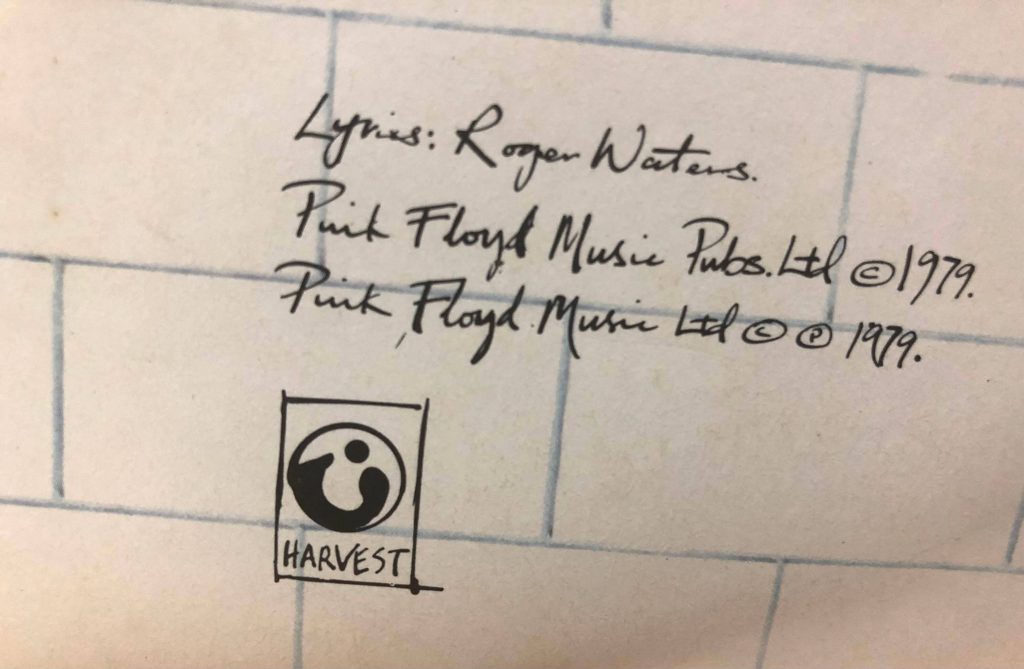 Lyrics: Roger Waters.
Pink Floyd Music Pubs. Ltd © 1979.
Pink Floyd Music Ltd © ℗ 1979.
HARVEST